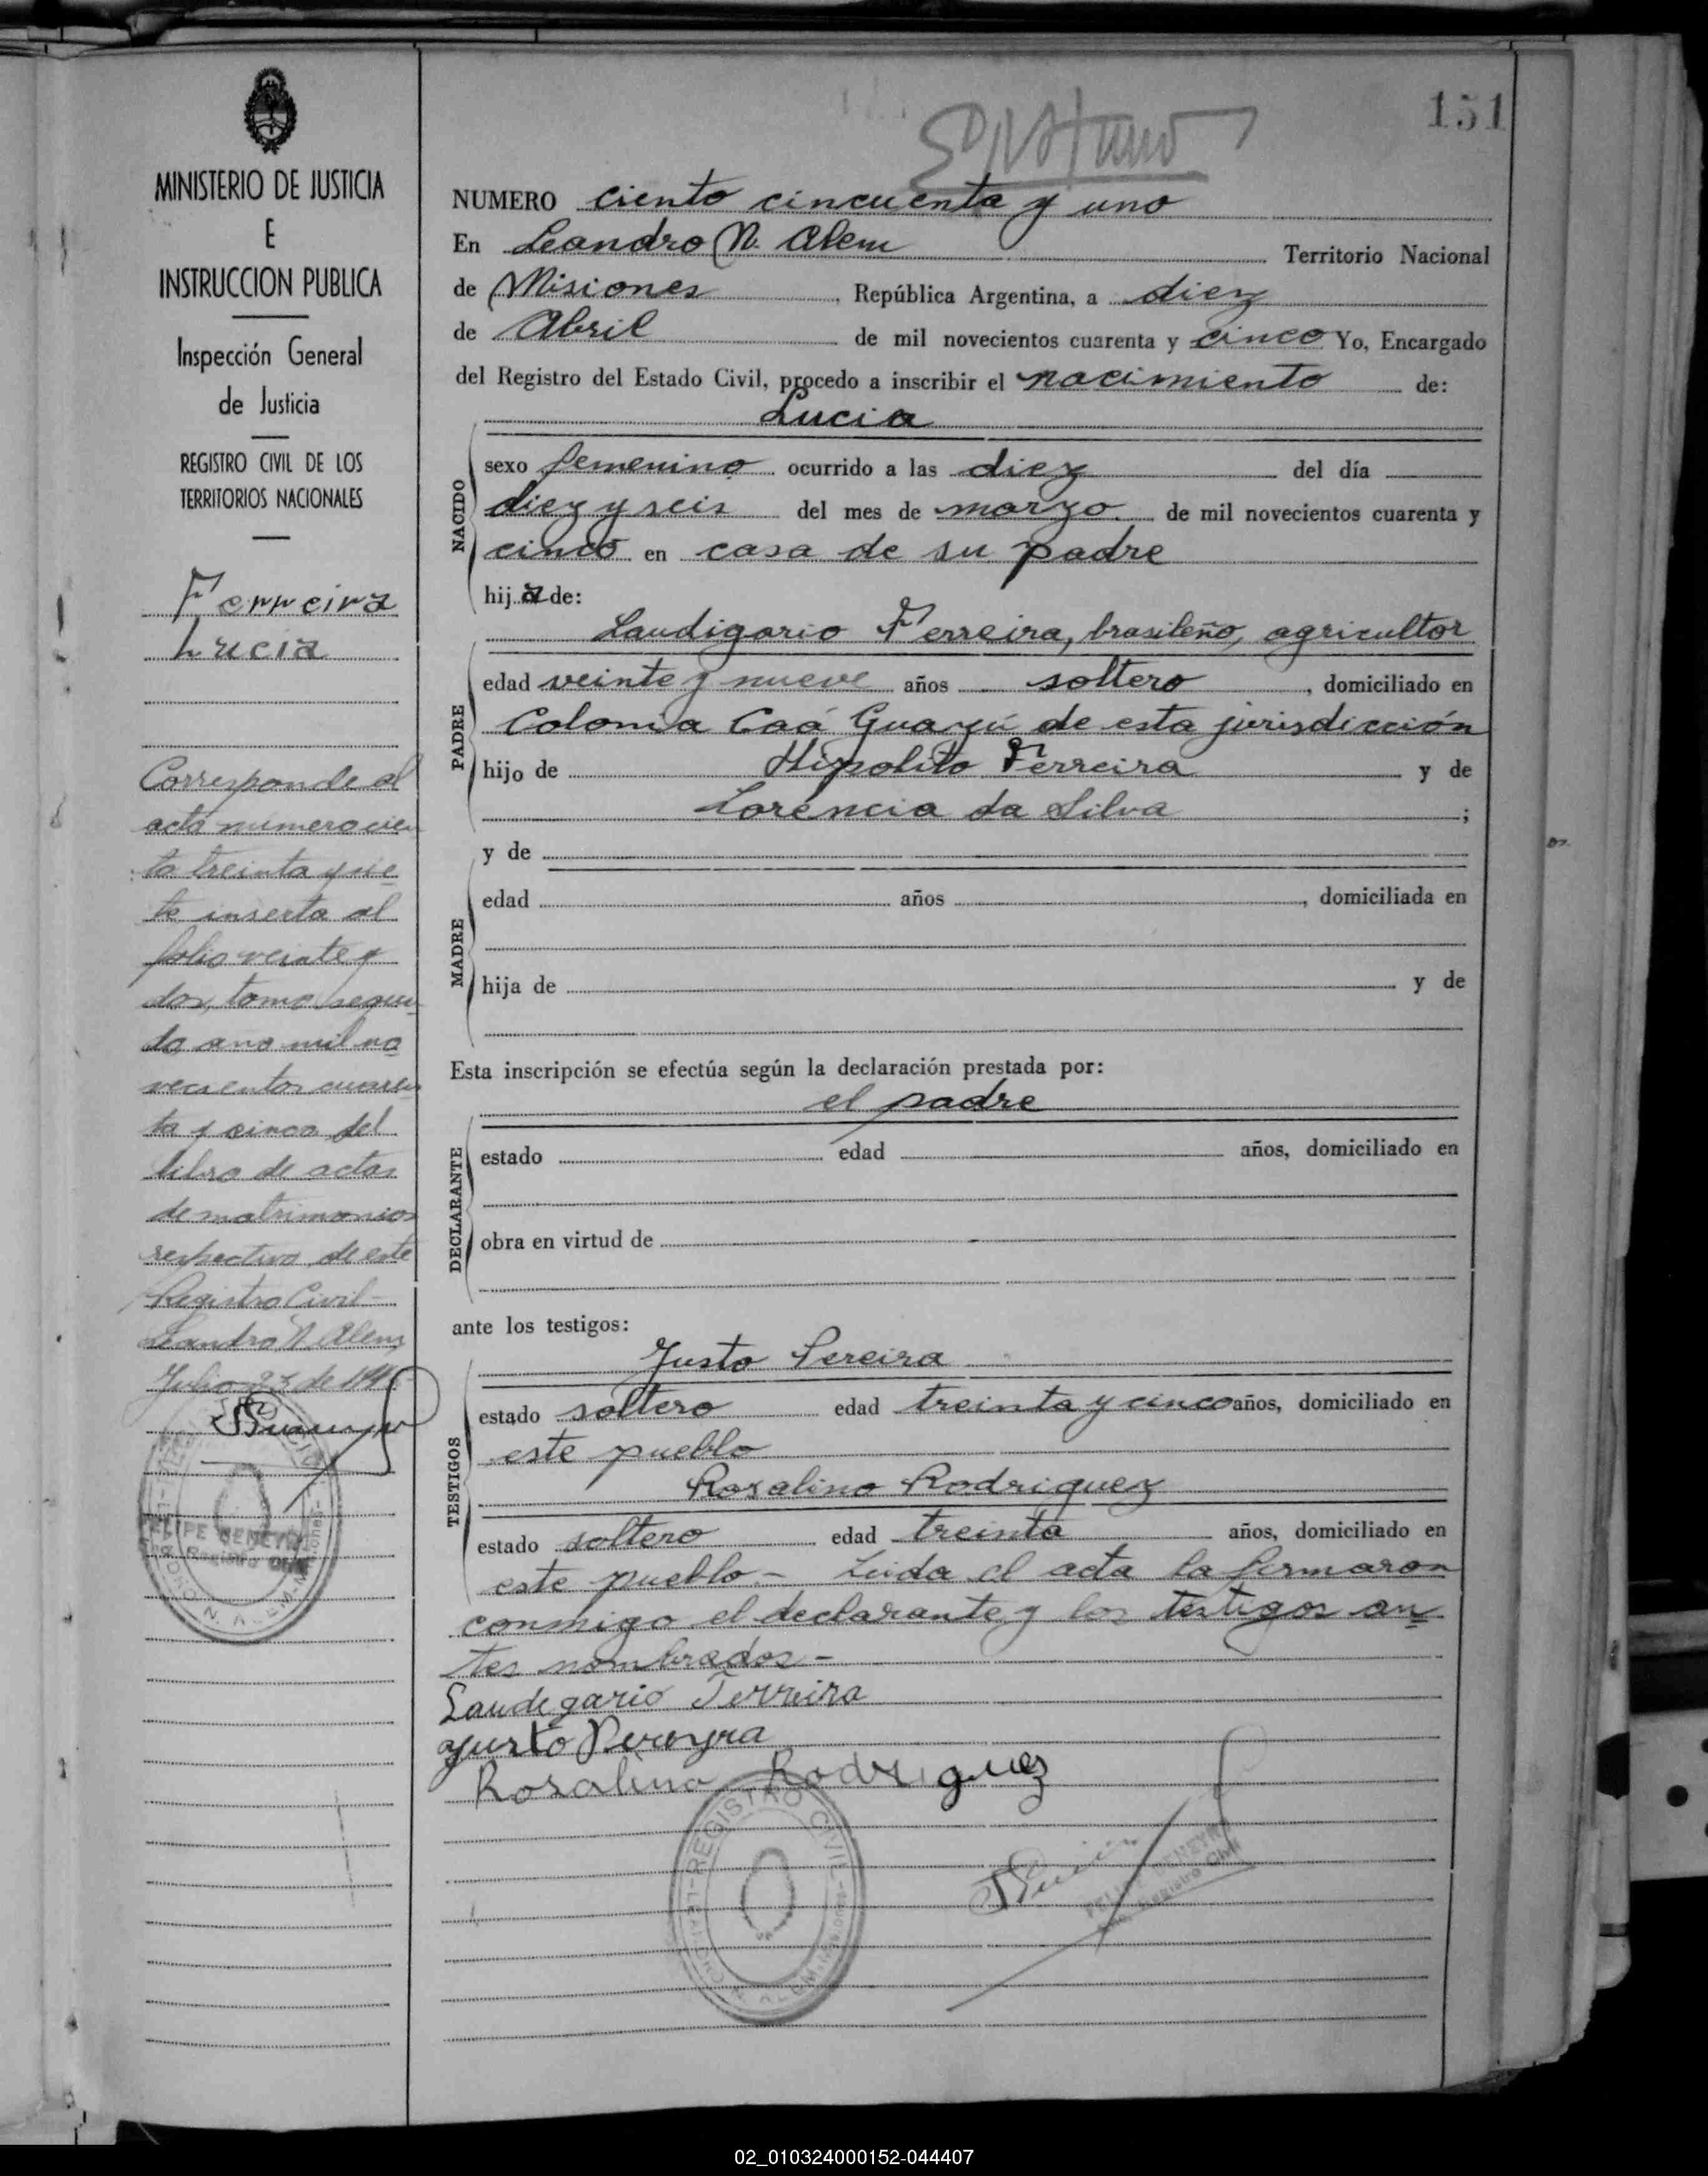 151
MINISTERIO DE JUSTICIA
E
INSTRUCCION PUBLICA
Inspección General
de Justicia
REGISTRO CIVIL DE LOS
TERRITORIOS NACIONALES
Ferreira
Lucia
Corresponde al
acta numero cien
to treinta y sie
te inserta al
folio veinte y
dos, tomo segun
do año mil no
vecientos cuaren
ta y cinco del
libro de actas
de matrimonios
respectivo de este
Registro Civil-
Leandro N. Alem,
Julio 23 de 194
FELIPE BENEYR
Enc. Registro Civil
NUMERO ciento cincuenta y uno
En Leandro N. Alem Territorio Nacional
de Misiones, República Argentina, a diez
de Abril de mil novecientos cuarenta y cinco Yo, Encargado
del Registro del Estado Civil, procedo a inscribir el nacimiento de:
Lucia
NACIDO
sexo femenino ocurrido a las diez del día
diez y seis del mes de marzo de mil novecientos cuarenta y
cinco en casa de su padre
hija de:
Laudigario Ferreira, brasileño, agricultor
PADRE
edad veinte y nueve años soltero, domiciliado en
Colonia Caá Guazú de esta jurisdicción
hijo de Hipolito Ferreira y de
Lorencia da Silva;
y de
MADRE
edad años, domiciliada en
hija de y de
Esta inscripción se efectúa según la declaración prestada por:
el padre
DECLARANTE
estado edad años, domiciliado en
obra en virtud de
ante los testigos:
Justo Pereira
TESTIGOS
estado soltero edad treinta y cinco años, domiciliado en
este pueblo
Rosalino Rodriguez
estado soltero edad treinta años, domiciliado en
este pueblo.- Leida el acta la firmaron
conmigo el declarante y los testigos an
tes nombrados-
Laudegario Ferreira
Justo Pereyra
Rosalino Rodriguez
REGISTRO CIVIL
02_010324000152-044407